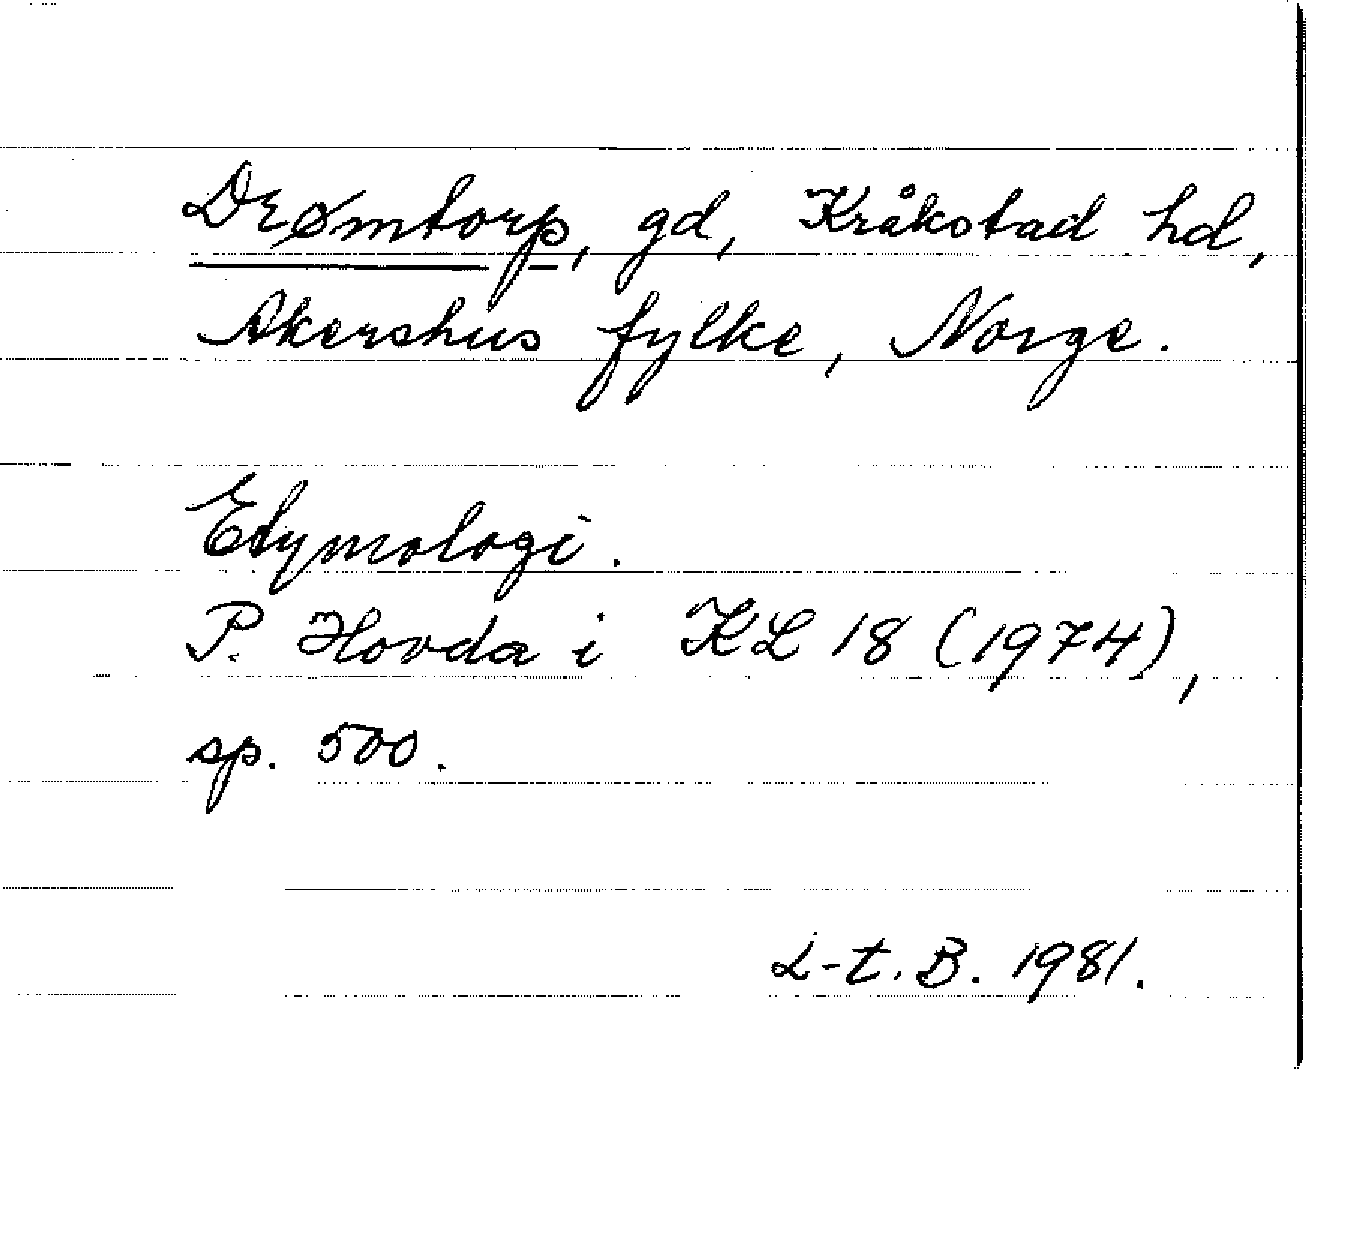 Drømtorp, gd, Kråkstad hd,
Akershus fylke, Norge.
Etymologi.
P. Hovda i KL 18 (1974),
sp. 500.
L-t. B. 1981.